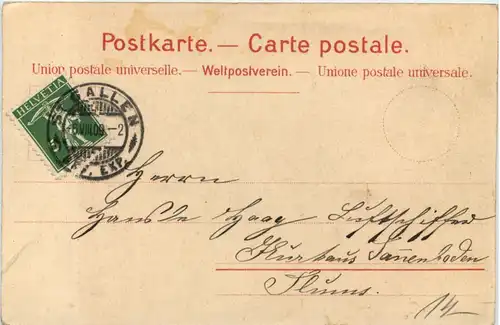 Postkarte. — Carte postale.
Union postale universelle. — Weltpostverein. — Unione postale universale.
HELVETIA
ST. GALLEN
VIII.09. –2
EXP.
Herrn
Haag Luftschiffer
Kurhaus Tannenboden
Flums.
14